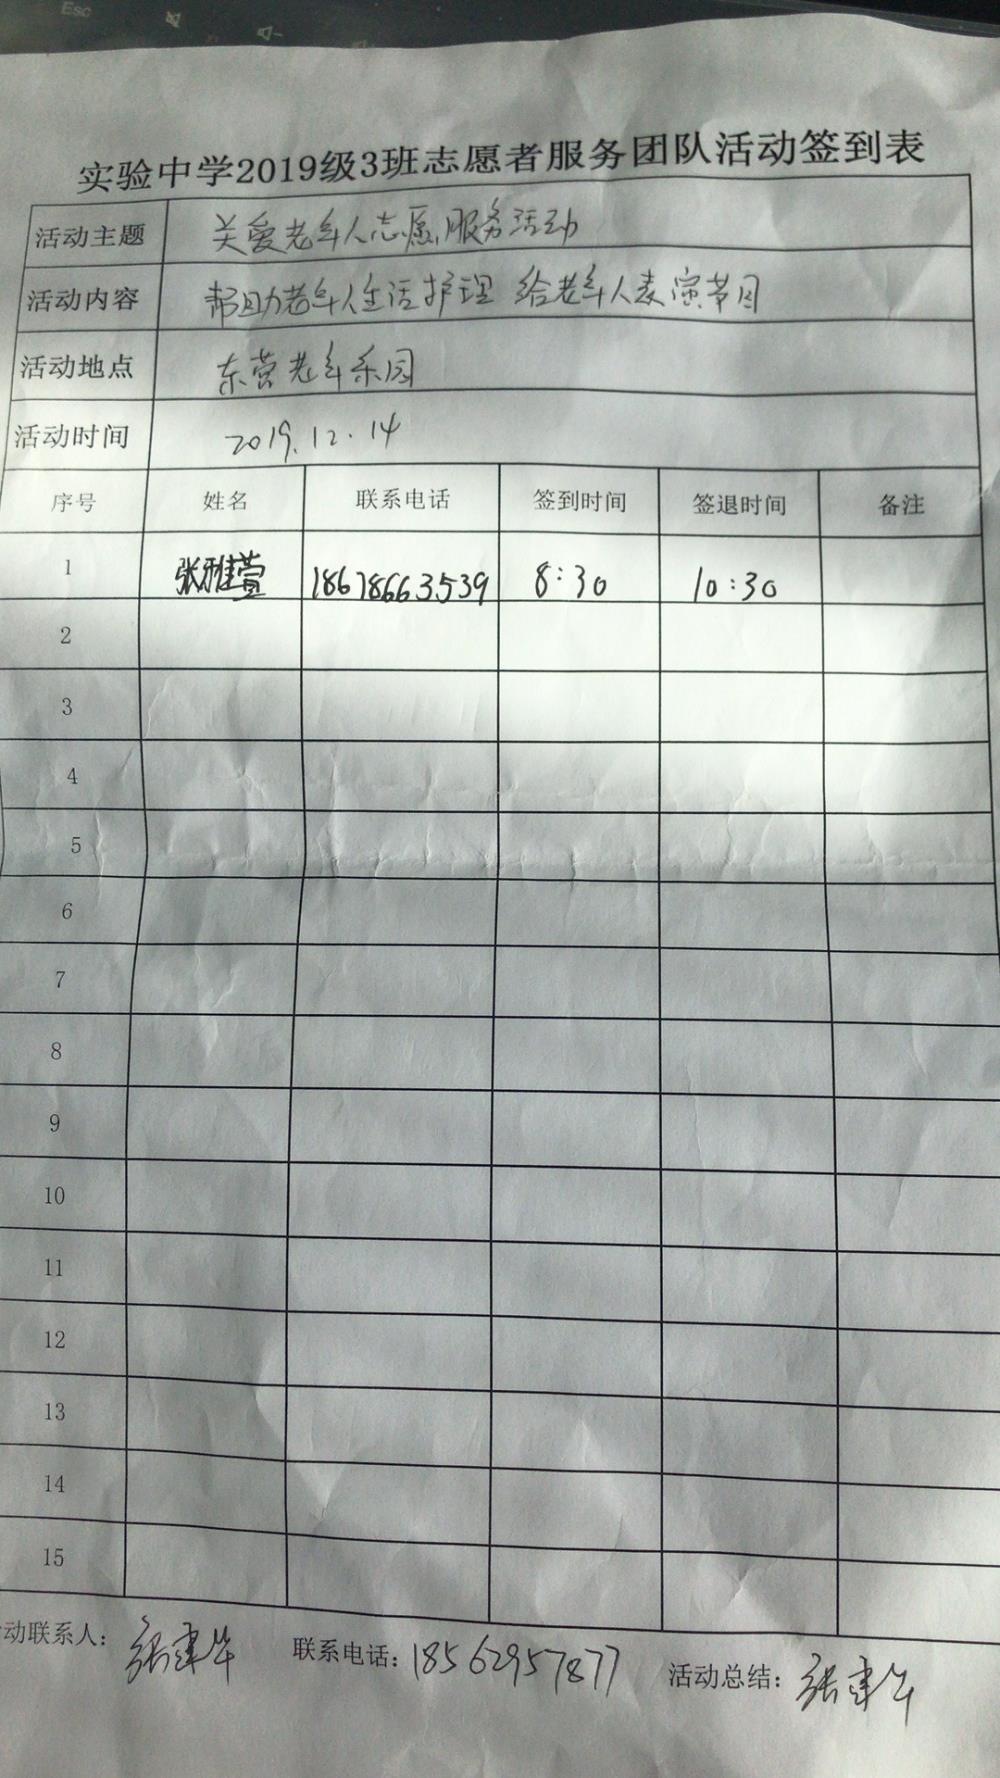 Esc
实验中学2019级3班志愿者服务团队活动签到表
活动主题 关爱老年人志愿服务活动
活动内容 帮助老年人生活护理 给老年人表演节目
活动地点 东营老年乐园
活动时间 2019.12.14
序号 姓名 联系电话 签到时间 签退时间 备注
1 张雅萱 18678663539 8:30 10:30
2
3
4
5
6
7
8
9
10
11
12
13
14
15
动联系人： 张建华 联系电话：18562957877 活动总结： 张建华